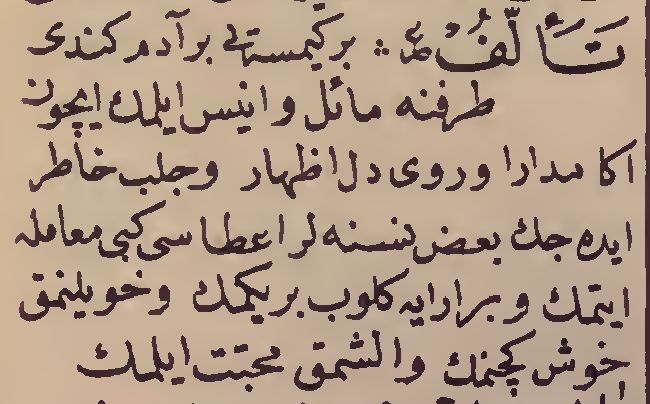 تَأَلُّفْ ع ؞ بر كیمسنه‌یی بر آدم كندی
طرفنه مائل و انیس ایلمك ایچون
اكا مدارا و روی دل اظهار و جلب خاطر
ایده‌جك بعض نسنه‌لر اعطاسی كبی معامله
ایتمك و بر ارایه كلوب بریكمك و خویلنمق
خوش كچنمك و الشمق محبت ایلمك